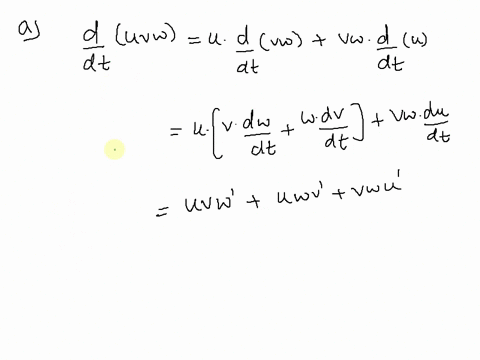 a) d/dt (uvw) = u. d/dt (vw) + vw. d/dt (u)
= u. [v. dw/dt + w. dv/dt] + vw. du/dt
= uvw' + uwv' + vwu'